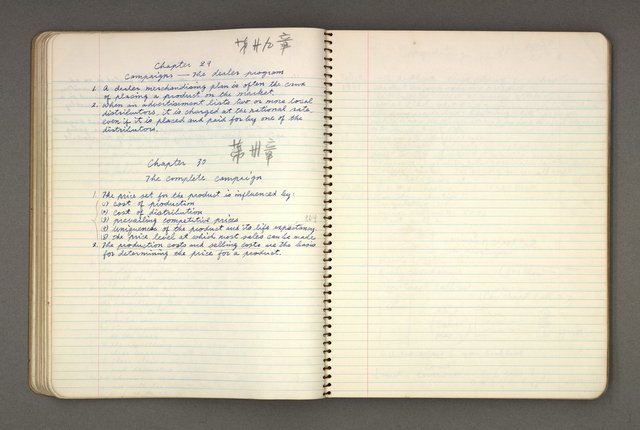 第廾九章
Chapter 29
Campaigns — The dealer program
1. A dealer merchandising plan is often the crux
of placing a product on the market.
2. When an advertisement lists two or more local
distributors, it is charged at the national rate
even if it is placed and paid for by one of the
distributors.
第卅章
Chapter 30
The complete campaign
1. The price set for the product is influenced by:
(1) cost of production
(2) cost of distribution
(3) prevailing competitive prices
(4) uniqueness of the product and its life expectancy
(5) the price level at which most sales can be made
2. The production costs and selling costs are the basis
for determining the price for a product.